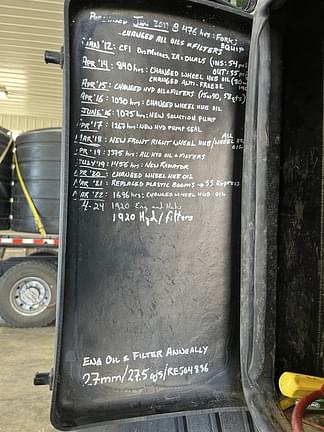 PURCHASED JAN 2011 @ 476 hrs: FORKS
- CHANGED ALL OILS & FILTERS EQUIP
JAN '12: CFI DES MOINES, IA: DUALS (INS: 54
OUT: 55
APR '14: 840 hrs: CHANGED WHEEL HUB OIL
CHANGED ANTI-FREEZE
APR '15: CHANGED HYD OIL & FILTERS (15w40,
APR '16: 1030 hrs: CHANGED WHEEL HUB OIL
JUNE '16: 1075 hrs: NEW SOLUTION PUMP
APR '17: 1267 hrs: NEW HYD PUMP SEAL
ALL
MAR '18: NEW FRONT RIGHT WHEEL HUB/WHEEL
OIL
APR '19: 1375 hrs: ALL HYD OIL & FILTERS
JULY '19: 1456 hrs: NEW RADIATOR
APR '20: CHANGED WHEEL HUB OIL
MAR '21: REPLACED PLASTIC BOOMS → SS EXPRESS
MAR '22: 1696 hrs: CHANGED WHEEL HUB OIL
4-24 1920 Eng and Hubs
1920 Hyd/filters
ENG OIL & FILTER ANNUALLY
27mm/27.5 qts/RE504836